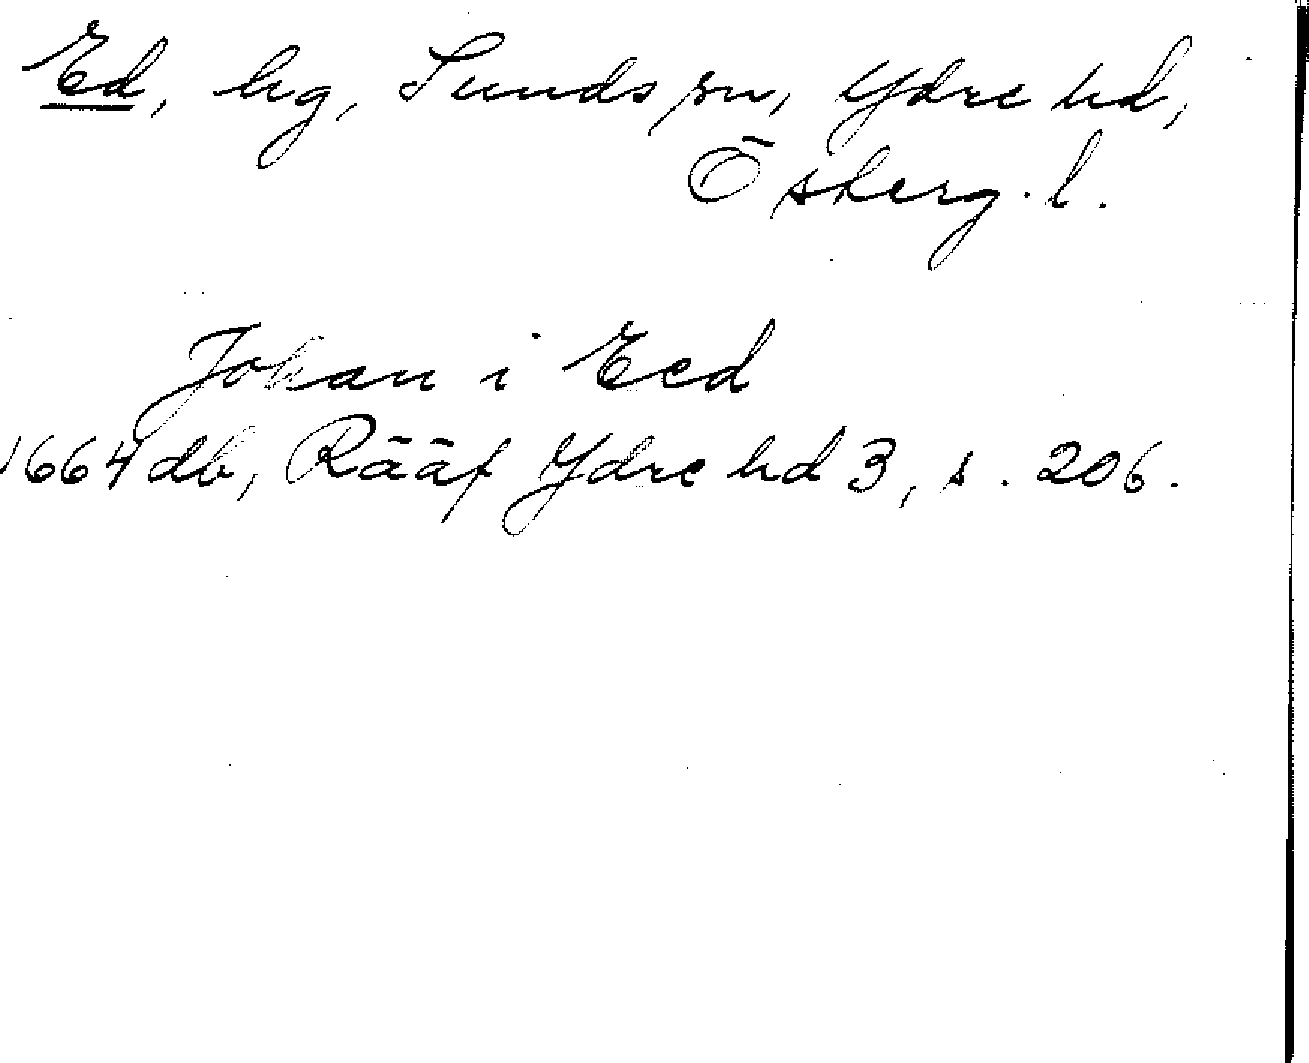 Ed, hg, Sunds sn, Ydre hd,
Österg. l.
Johan i Eed
1664 db, Rääf Ydre hd 3, s. 206.